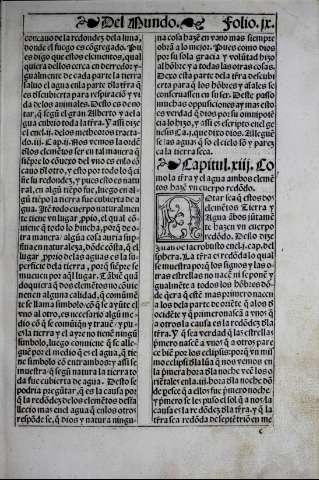 Del Mundo. Folio. ix.
concauo dela redondez dela luna,
donde el fuego es cōgregado. Pu
es digo que estos elementos, qual
quiera dellos cerca en derredor y-
gualmente de cada parte la tierra
saluo el agua en la parte dla trra q̄
es discubierta para respiració y vi
da delos animales. Desto es de no
tar, q̄ segū el gran Alberto y ael a
gua cubrio toda la trra. Y assi dize
el en el.ij. delos methoros tracta-
do.iij. Cap.ij. Nos vemos la ordē
destos elemētos ser en tal manera q̄
siēpre lo cōcauo del vno es enlo cō
cauo dl otro, y esto por todo lo q̄ ci
ñe su redondez, y pues ello es natu
ral, en algū tiēpo fue, luego en al-
gū tiēpo la tierra fue cubierta de a
gua. Itē todo cuerpo natural mē
te tiene vn lugar, ppio, el qual cō
uiene q̄ todo lo hincha, porq̄ de o-
tra manera
sin en naturaleza, dōde cōsta, q̄ el
lugar ppio delas aguas es la su-
perficie dela tierra, porq̄ siēpre se
mueuen por aq̄l lugar. Tābiē quā
do quiera q̄ dos elemētos no cōuie
nenen alguna calidad, q̄ comunmē
te se llama simbolo con q̄ se ayūte el
vno al otro, es necessario algū me-
dio cō q̄ se comuniq̄n y traue y pu-
es la tierra y el ayre no tienē ningū
simbolo, luego conuiene q̄ se alle-
guē por el medio q̄ es el agua, q̄ tie
ne simbolo cō entrambos y assi se
muestra q̄ segū natura la tierra to
da fue cubierta de agua. Desto se
podria pregūtar, q̄ es la causa por
q̄ la redondez delos elemētos desfa
llecio mas en el agua q̄ enlos otros
respōdese, q̄ dios y natura ningu-
na cosa hazē en vano mas siempre
obrā a lo mejor. Pues como dios
por su sola gracia y volūtad hizo
al hōbre y a todas las otras cosas.
Dexo esta parte dela trra descubi
erta para q̄ los hōbres y aīales se
conseruassen en su ser. Deste passo
muchas opposiciones ay mas esto
es verdad q̄ dios por su omnipotē
cia lo hizo, y assi es escripto en el ge
nesis Ca.j. que dixo dios. Alleguē
se las aguas so el cielo so y pares
ca la tierra seca.
Capitul.xiij. Co
mo la trra y el agua ambos elemē
tos hazē vn cuerpo redōdo.
Notar seca q̄ estos dos
elemētos Tierra y
Agua ābos jūtamē
te hazen vn cuerpo
redōdo. Desto dize
Juan de sacrobusto en el.j. cap. del
sphera. La trra es redōda lo qual
se muestra porq̄ los signos y las o-
tras estrellas no nacē ni se ponē y
gualmēte a todos los hōbres dō
de q̄era q̄ estē mas primero nacen
a los dela parte de oriēte q̄ alos de
ocidēte y q̄ primero nascā a vnos q̄
a otros la causa es la redōdez dla
trra. Y q̄ sea verdad q̄ las estrellas
primero nascā a vnos q̄ a otros pare
ce biē por los eclipses: porq̄ vn mis
mo eclipsi dla lūa q̄ nos vemos en
la pmera hora dla noche veē los o-
riētales en la.iij. hora dla noche dō
de pesce q̄ a ellos fue primero noche
y pmero se les puso el sol q̄ a nos: la
causa es la redōdez dla trra. y q̄ la
trra sea redōda de septētriō en me
c